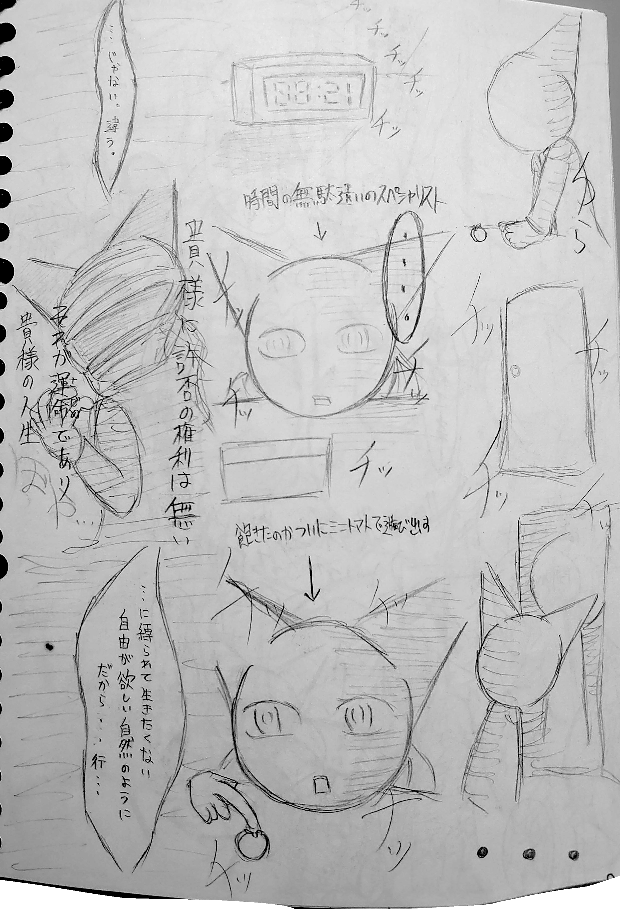 チッ
チッ
チッ
チッ
チッ
08:21
ゆら
時間の無駄遣いのスペシャリスト
・・・・。
…じゃない。違う。
チッ
チッ
チッ
チッ
チッ
チッ
チッ
貴様に許否の権利は無い
運命であり
貴様の人生
飽きたのかついにミニトマトで遊び出す
チッ
チッ
チッ
チッ
チッ
…に縛られて生きたくない
自由が欲しい自然のように
だから・・・・行…